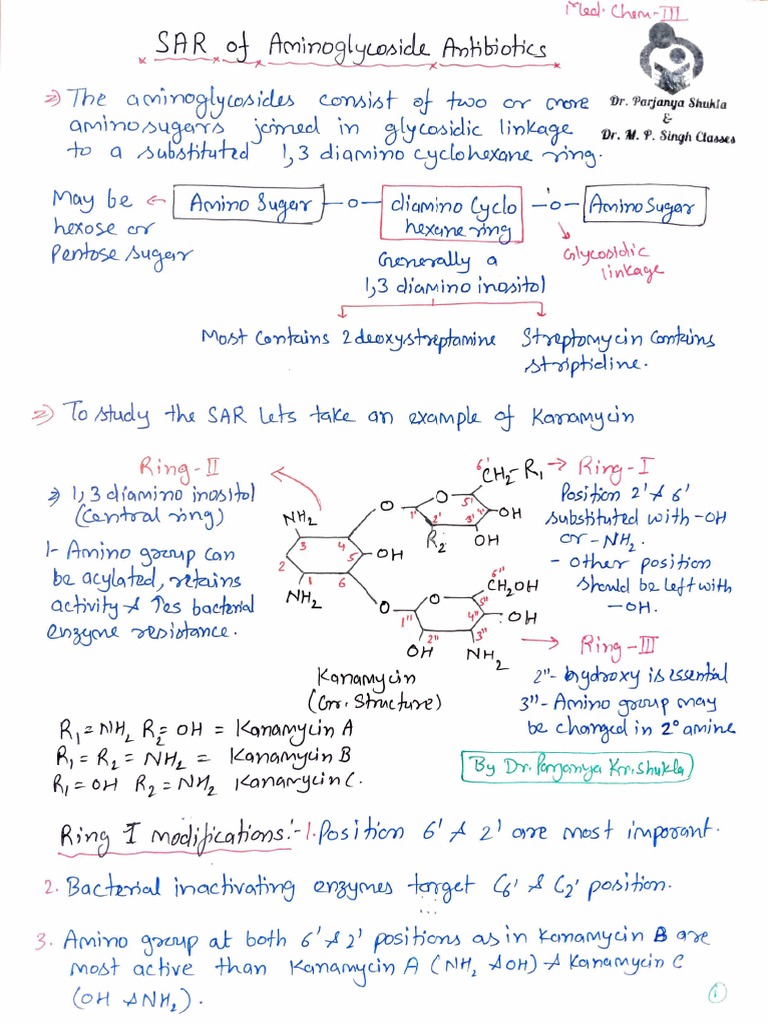 Med. Chem-III
SAR of Aminoglycoside Antibiotics
Dr. Parjanya Shukla
&
Dr. M. P. Singh Classes
The aminoglycosides consist of two or more
aminosugars joined in glycosidic linkage
to a substituted 1,3 diamino cyclohexane ring.
May be ← Amino Sugar —o— diamino Cyclo —o— Amino Sugar
hexose or
Pentose sugar
hexane ring
Glycosidic
linkage
Generally a
1,3 diamino inositol
Most contains 2 deoxystreptamine
Streptomycin contains
striptidine.
To study the SAR lets take an example of Kanamycin
Ring-II
1,3 diamino inositol
(central ring)
1- Amino group can
be acylated, retains
activity & ↑es bacterial
enzyme resistance.
6' CH2-R1 → Ring-I
Position 2' & 6'
substituted with -OH
or -NH2.
- other position
should be left with
-OH.
O O 5' 4' OH
1' 2' 3'
R2 OH
NH2
3 4 5 OH
2 1 6
NH2
6'' CH2OH
O O 5'' 4'' OH
1'' 2'' 3''
OH NH2
→ Ring-III
2''- hydroxy is essential
3''- Amino group may
be changed in 2° amine
Kanamycin
(Gn. Structure)
R1 = NH2 R2 = OH = Kanamycin A
R1 = R2 = NH2 = Kanamycin B
R1 = OH R2 = NH2 Kanamycin C.
By Dr. Parjanya Kr. Shukla
Ring I modifications:- 1. Position 6' & 2' are most imporant.
2. Bacterial inactivating enzymes target C6' & C2' position.
3. Amino group at both 6' & 2' positions as in Kanamycin B are
most active than Kanamycin A (NH2 & OH) & Kanamycin C
(OH & NH2).
1